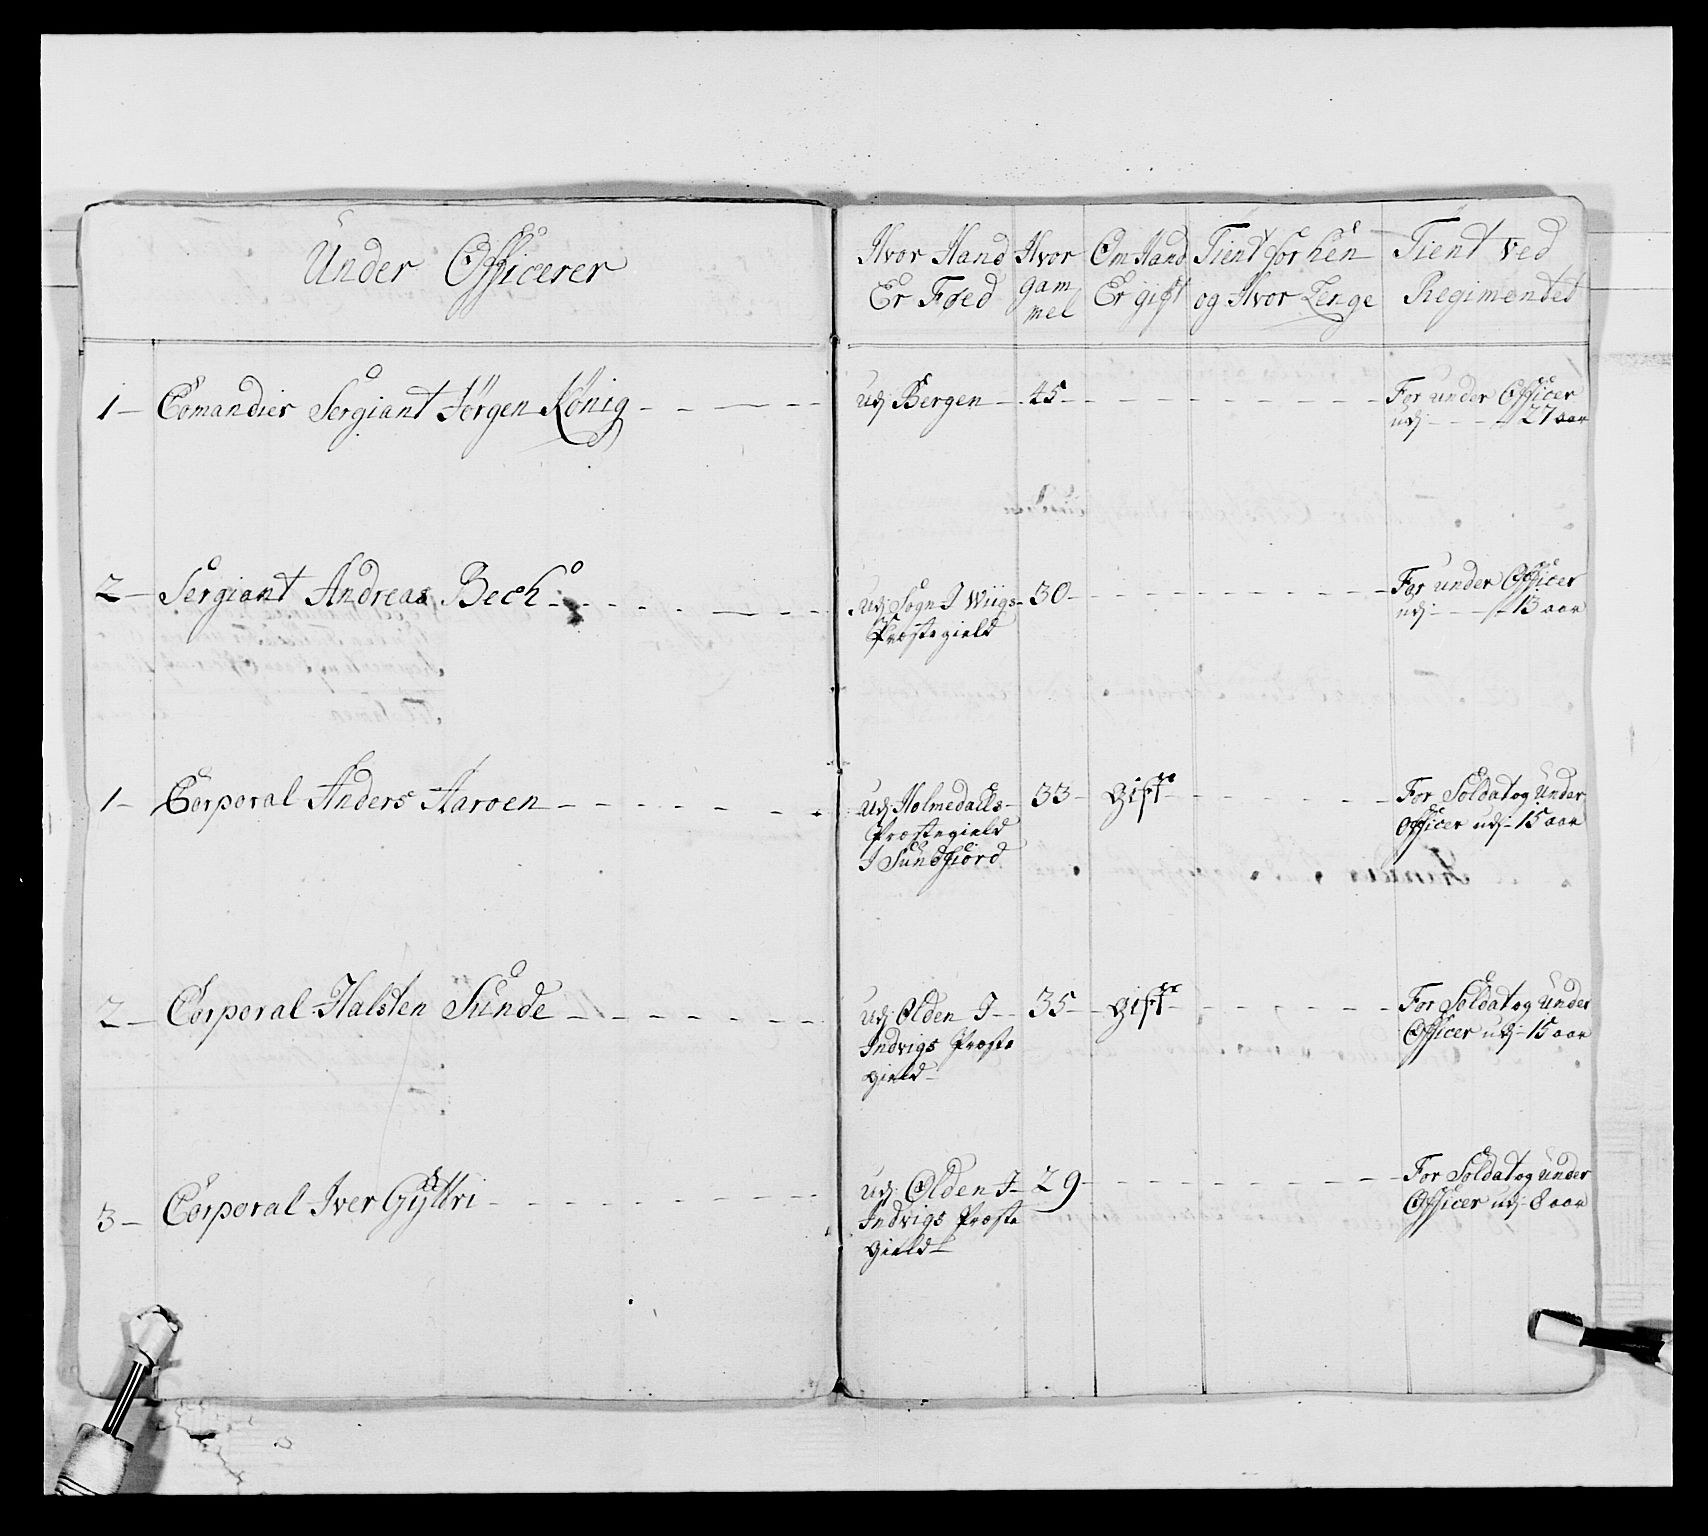 Under Officerer
Hvor Hand Er Føed
Hvor gam mel
Om Hand Er gift
Tient for hen og Hvor Lenge
Tient ved Regimentet
1 — Comandier Sergiant Jörgen König — udj Bergen — 45 — For under Officer
udj — 27 aar
2 — Sergiant Andreas Bech — udj Sogn I Wiigs — 30 — For under Officer
Præstegield udj — 13 aar
1 — Corporal Anders Aaroen — udj Holmedals — 33 — gift — For Soldat og Under
Præstegield Officer udj — 15 aar
I Sundfiord
2 — Corporal Halsten Sunde — udj Olden I — 35 — gift — For Soldat og Under
Indvigs Præste Officer udj — 15 aar
gield —
3 — Corporal Iver Gÿttri — udj Olden I — 29 — For Soldat og Under
Indvigs Præste Officer udj — 8 aar
gield —